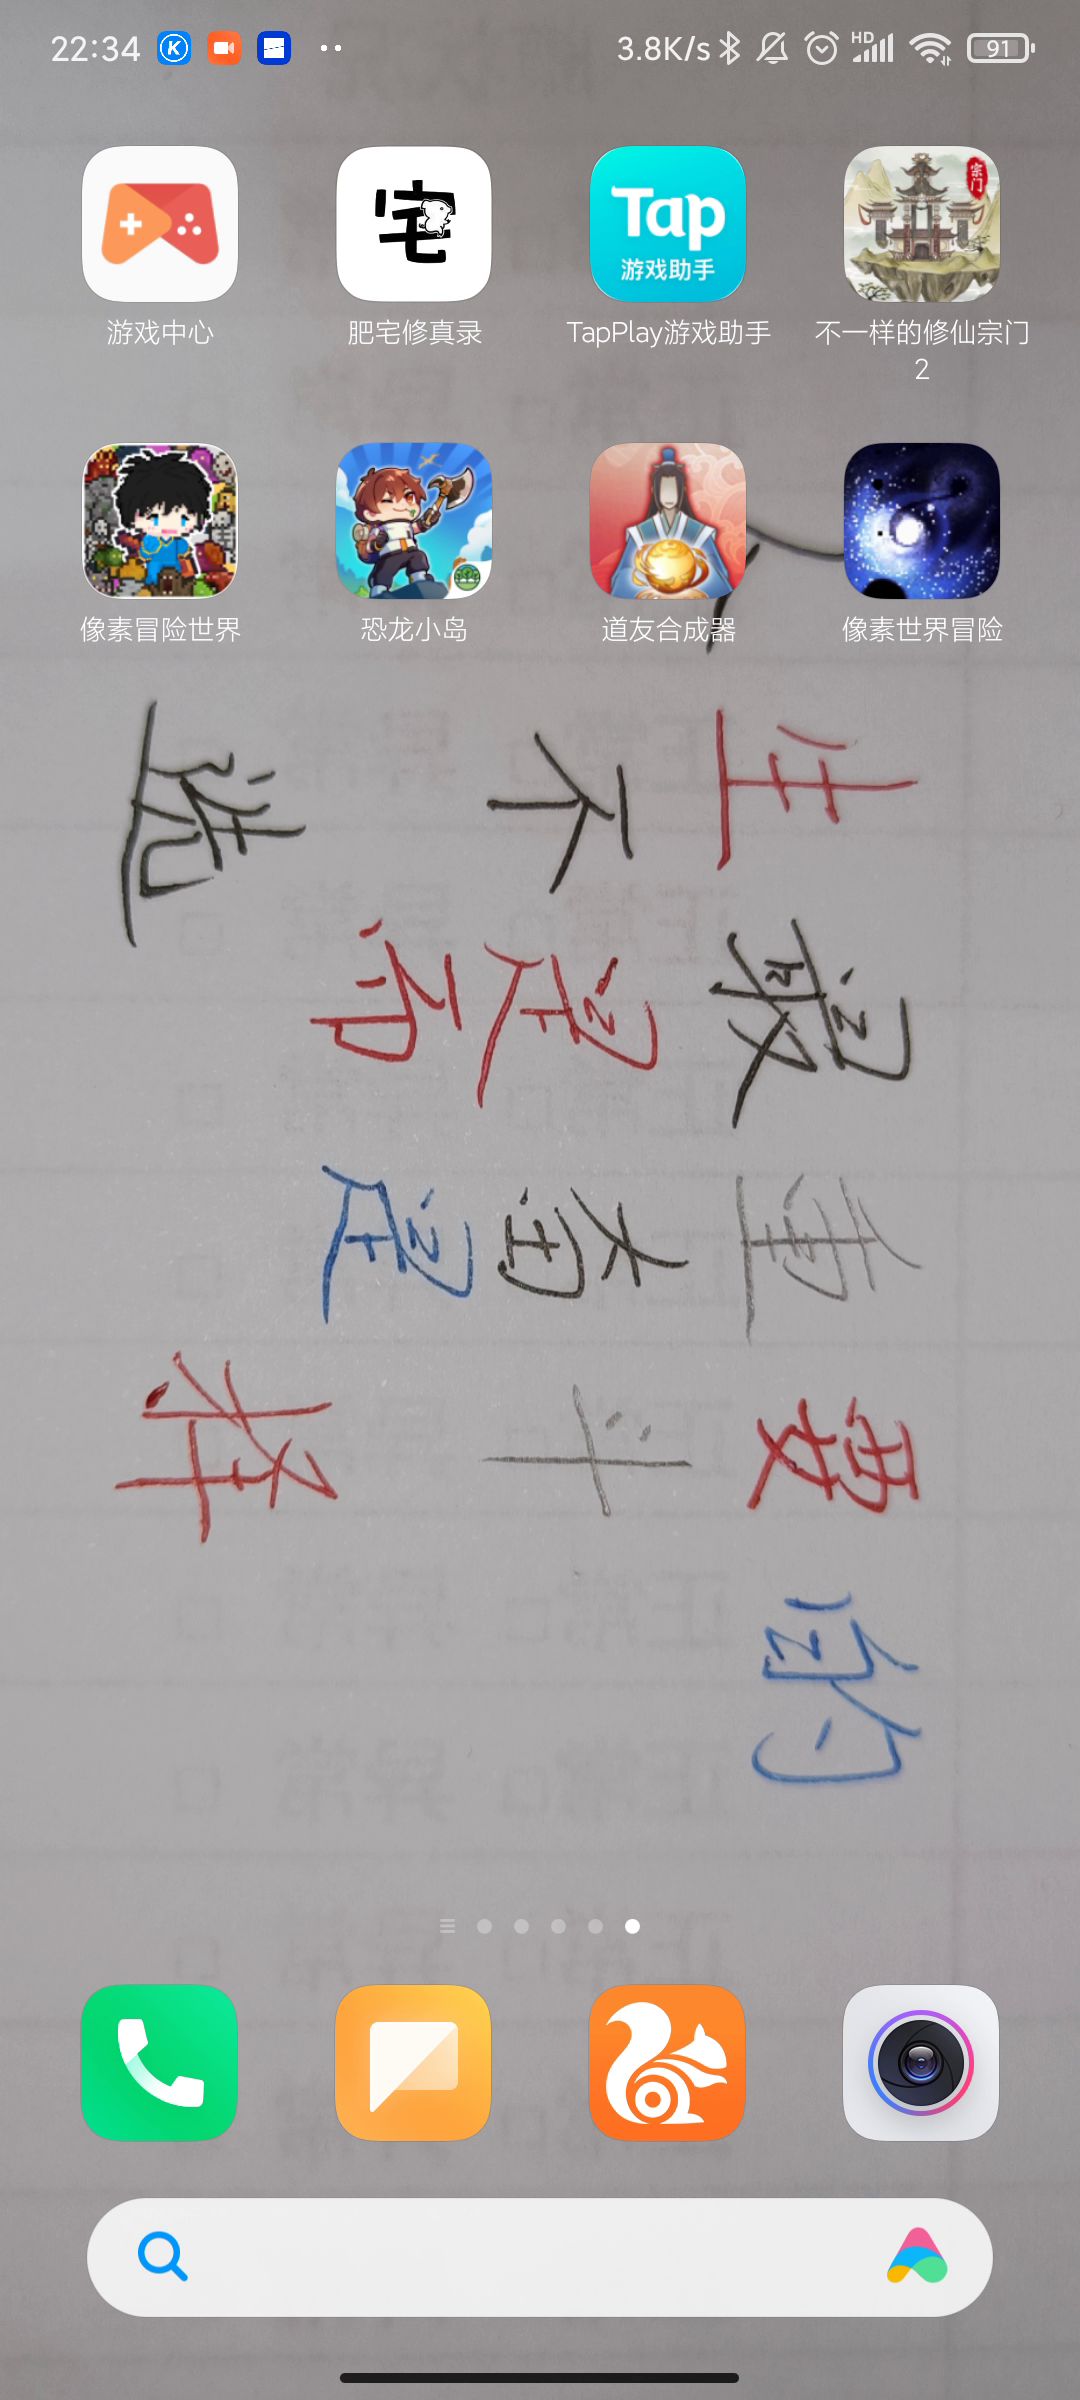 22:34
3.8K/s HD 91
宅
Tap
游戏助手
宗门
游戏中心
肥宅修真录
TapPlay游戏助手
不一样的修仙宗门
2
像素冒险世界
恐龙小岛
道友合成器
像素世界冒险
人生最重要的
不是奋斗
而是
选择